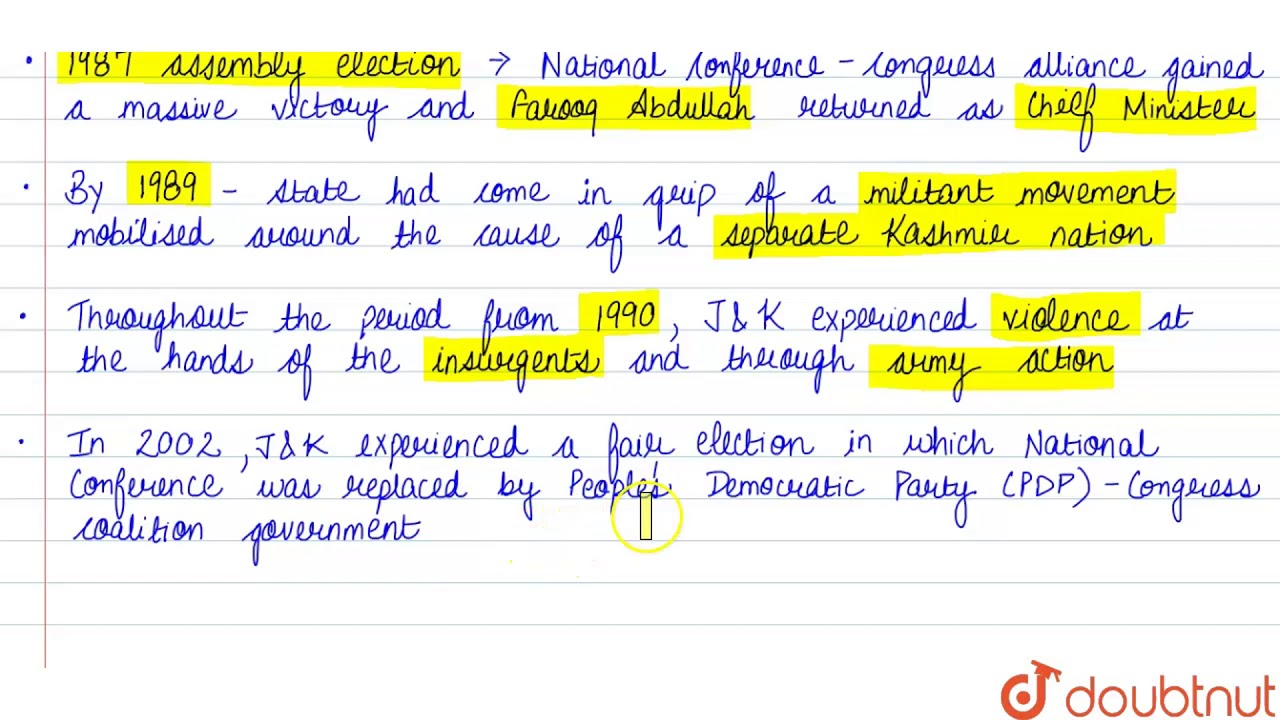 • 1987 assembly election → National Conference - Congress alliance gained
a massive victory and Farooq Abdullah returned as Chief Minister
• By 1989 - state had come in grip of a militant movement
mobilised around the cause of a separate Kashmir nation
• Throughout the period from 1990, J&K experienced violence at
the hands of the insurgents and through army action
• In 2002, J&K experienced a fair election in which National
Conference was replaced by People's Democratic Party (PDP) - Congress
coalition government
doubtnut